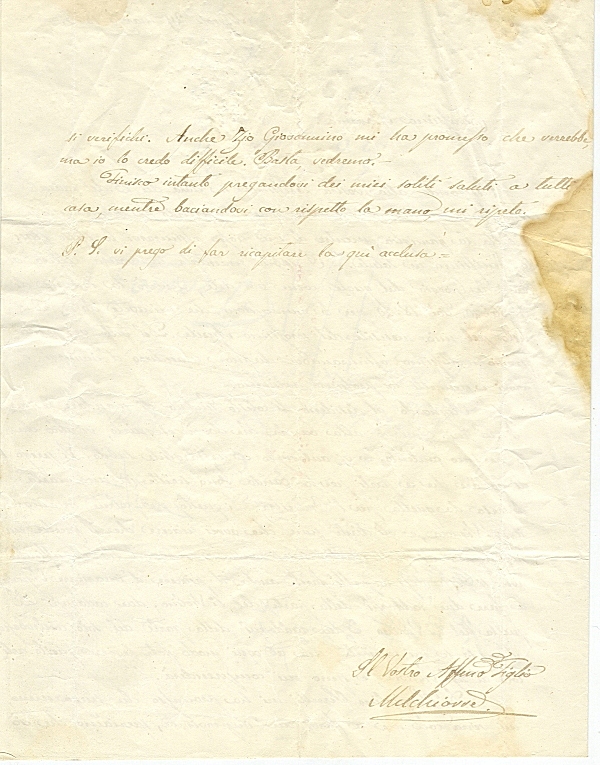 si verifichi. Anche Zjo Giovannino mi ha promesso, che verrebbe,
ma io lo credo difficile. Basta vedremo. –
Finisco intanto pregandovi dei miei soliti saluti a tutti
casa, mentre baciandovi con rispetto la mano, mi ripeto.
P. S. vi prego di far ricapitare la quì acclusa =
Il Vostro Affmo Figlio
Melchiorre